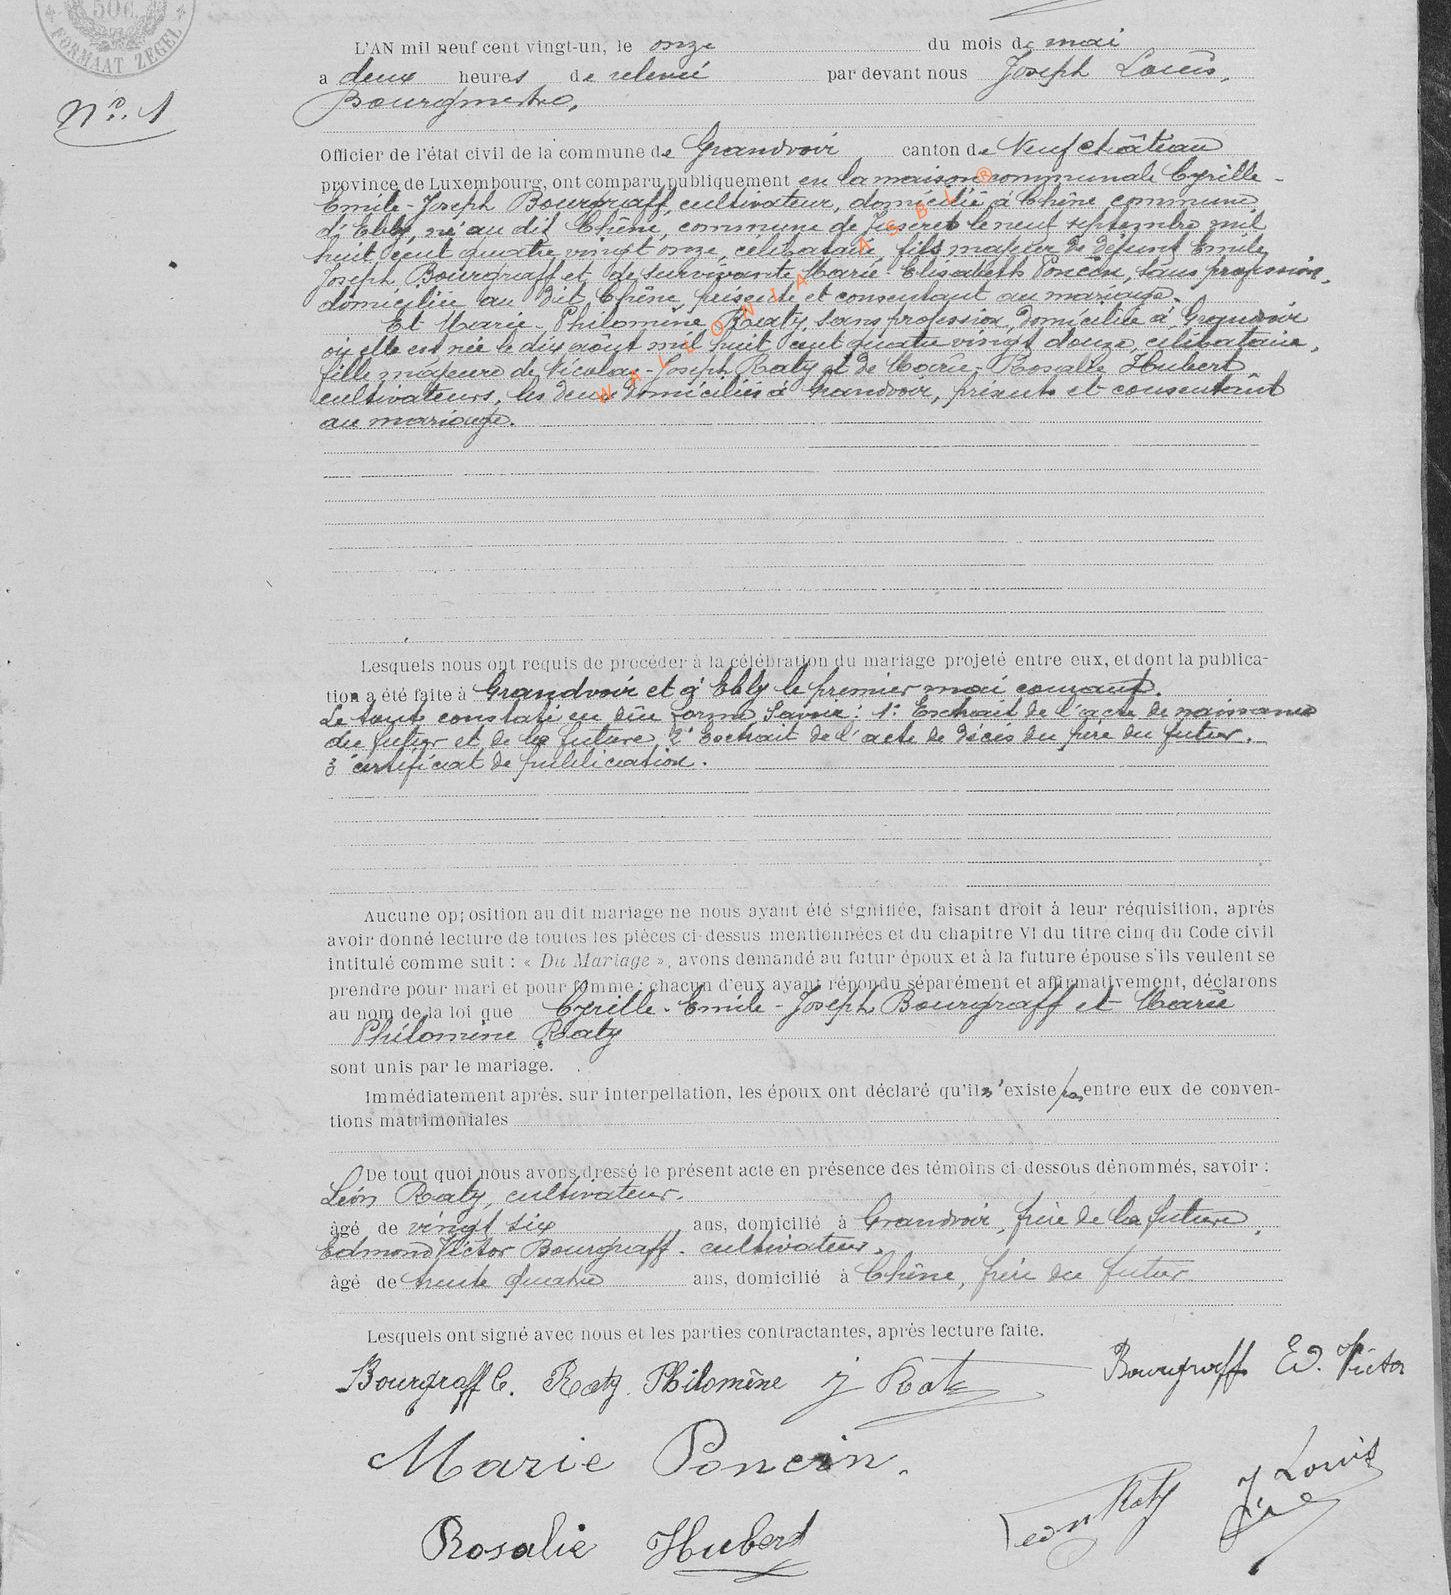 50c.
FORMAAT ZEGEL
L'AN mil neuf cent vingt-un, le onze du mois de mai
a deux heures de relevée par devant nous Joseph Louis,
Nº. 1
Bourgmestre,
Officier de l'état civil de la commune de Grandvoir canton de Neufchâteau
province de Luxembourg, ont comparu publiquement en la maison communale Cyrille-
Emile-Joseph Bourgraff, cultivateur, domicilié à Chêne commune
d'Ebly, né au dit Chêne, commune de Juseret le neuf septembre mil
huit cent quatre vingt onze, célibataire, fils majeur de défunt Emile
Joseph Bourgraff et de survivante Marie-Elisabeth Poncin, sans profession,
domiciliée au dit Chêne, présente et consentant au mariage.
Et Marie-Philomène Raty, sans profession, domiciliée à Grandvoir
où elle est née le dix août mil huit cent quatre vingt douze, célibataire,
fille majeure de Nicolas-Joseph Raty et de Marie-Rosalie Hubert
cultivateurs, les deux domiciliés à Grandvoir, présents et consentant
au mariage.
WALLONIA ASBL ®
Lesquels nous ont requis de procéder à la célébration du mariage projeté entre eux, et dont la publica-
tion a été faite à Grandvoir et à Ebly le premier mai courant.
Le tout constaté en due forme, savoir: 1º Extrait de l'acte de naissance
du futur et de la future, 2º Extrait de l'acte de décès du père du futur,
3º certificat de publication.
Aucune op;osition au dit mariage ne nous ayant été signifiée, faisant droit à leur réquisition, après
avoir donné lecture de toutes les pièces ci-dessus mentionnées et du chapitre VI du titre cinq du Code civil
intitulé comme suit : « Du Mariage », avons demandé au futur époux et à la future épouse s'ils veulent se
prendre pour mari et pour femme ; chacun d'eux ayant répondu séparément et affirmativement, déclarons
au nom de la loi que Cyrille-Emile-Joseph Bourgraff et Marie
Philomène Raty
sont unis par le mariage.
Immédiatement après, sur interpellation, les époux ont déclaré qu'il n'existe pas entre eux de conven-
tions matrimoniales
De tout quoi nous avons dressé le présent acte en présence des témoins ci-dessous dénommés, savoir :
Léon Raty, cultivateur.
âgé de vingt six ans, domicilié à Grandvoir, frère de la future,
Edmond Victor Bourgraff. cultivateur,
âgé de trente quatre ans, domicilié à Chêne, frère du futur
Lesquels ont signé avec nous et les parties contractantes, après lecture faite.
Bourgraff C. Raty Philomène J Raty Bourgraff Ed. Victor
Marie Poncin.
Leon Raty J Louis
Rosalie Hubert